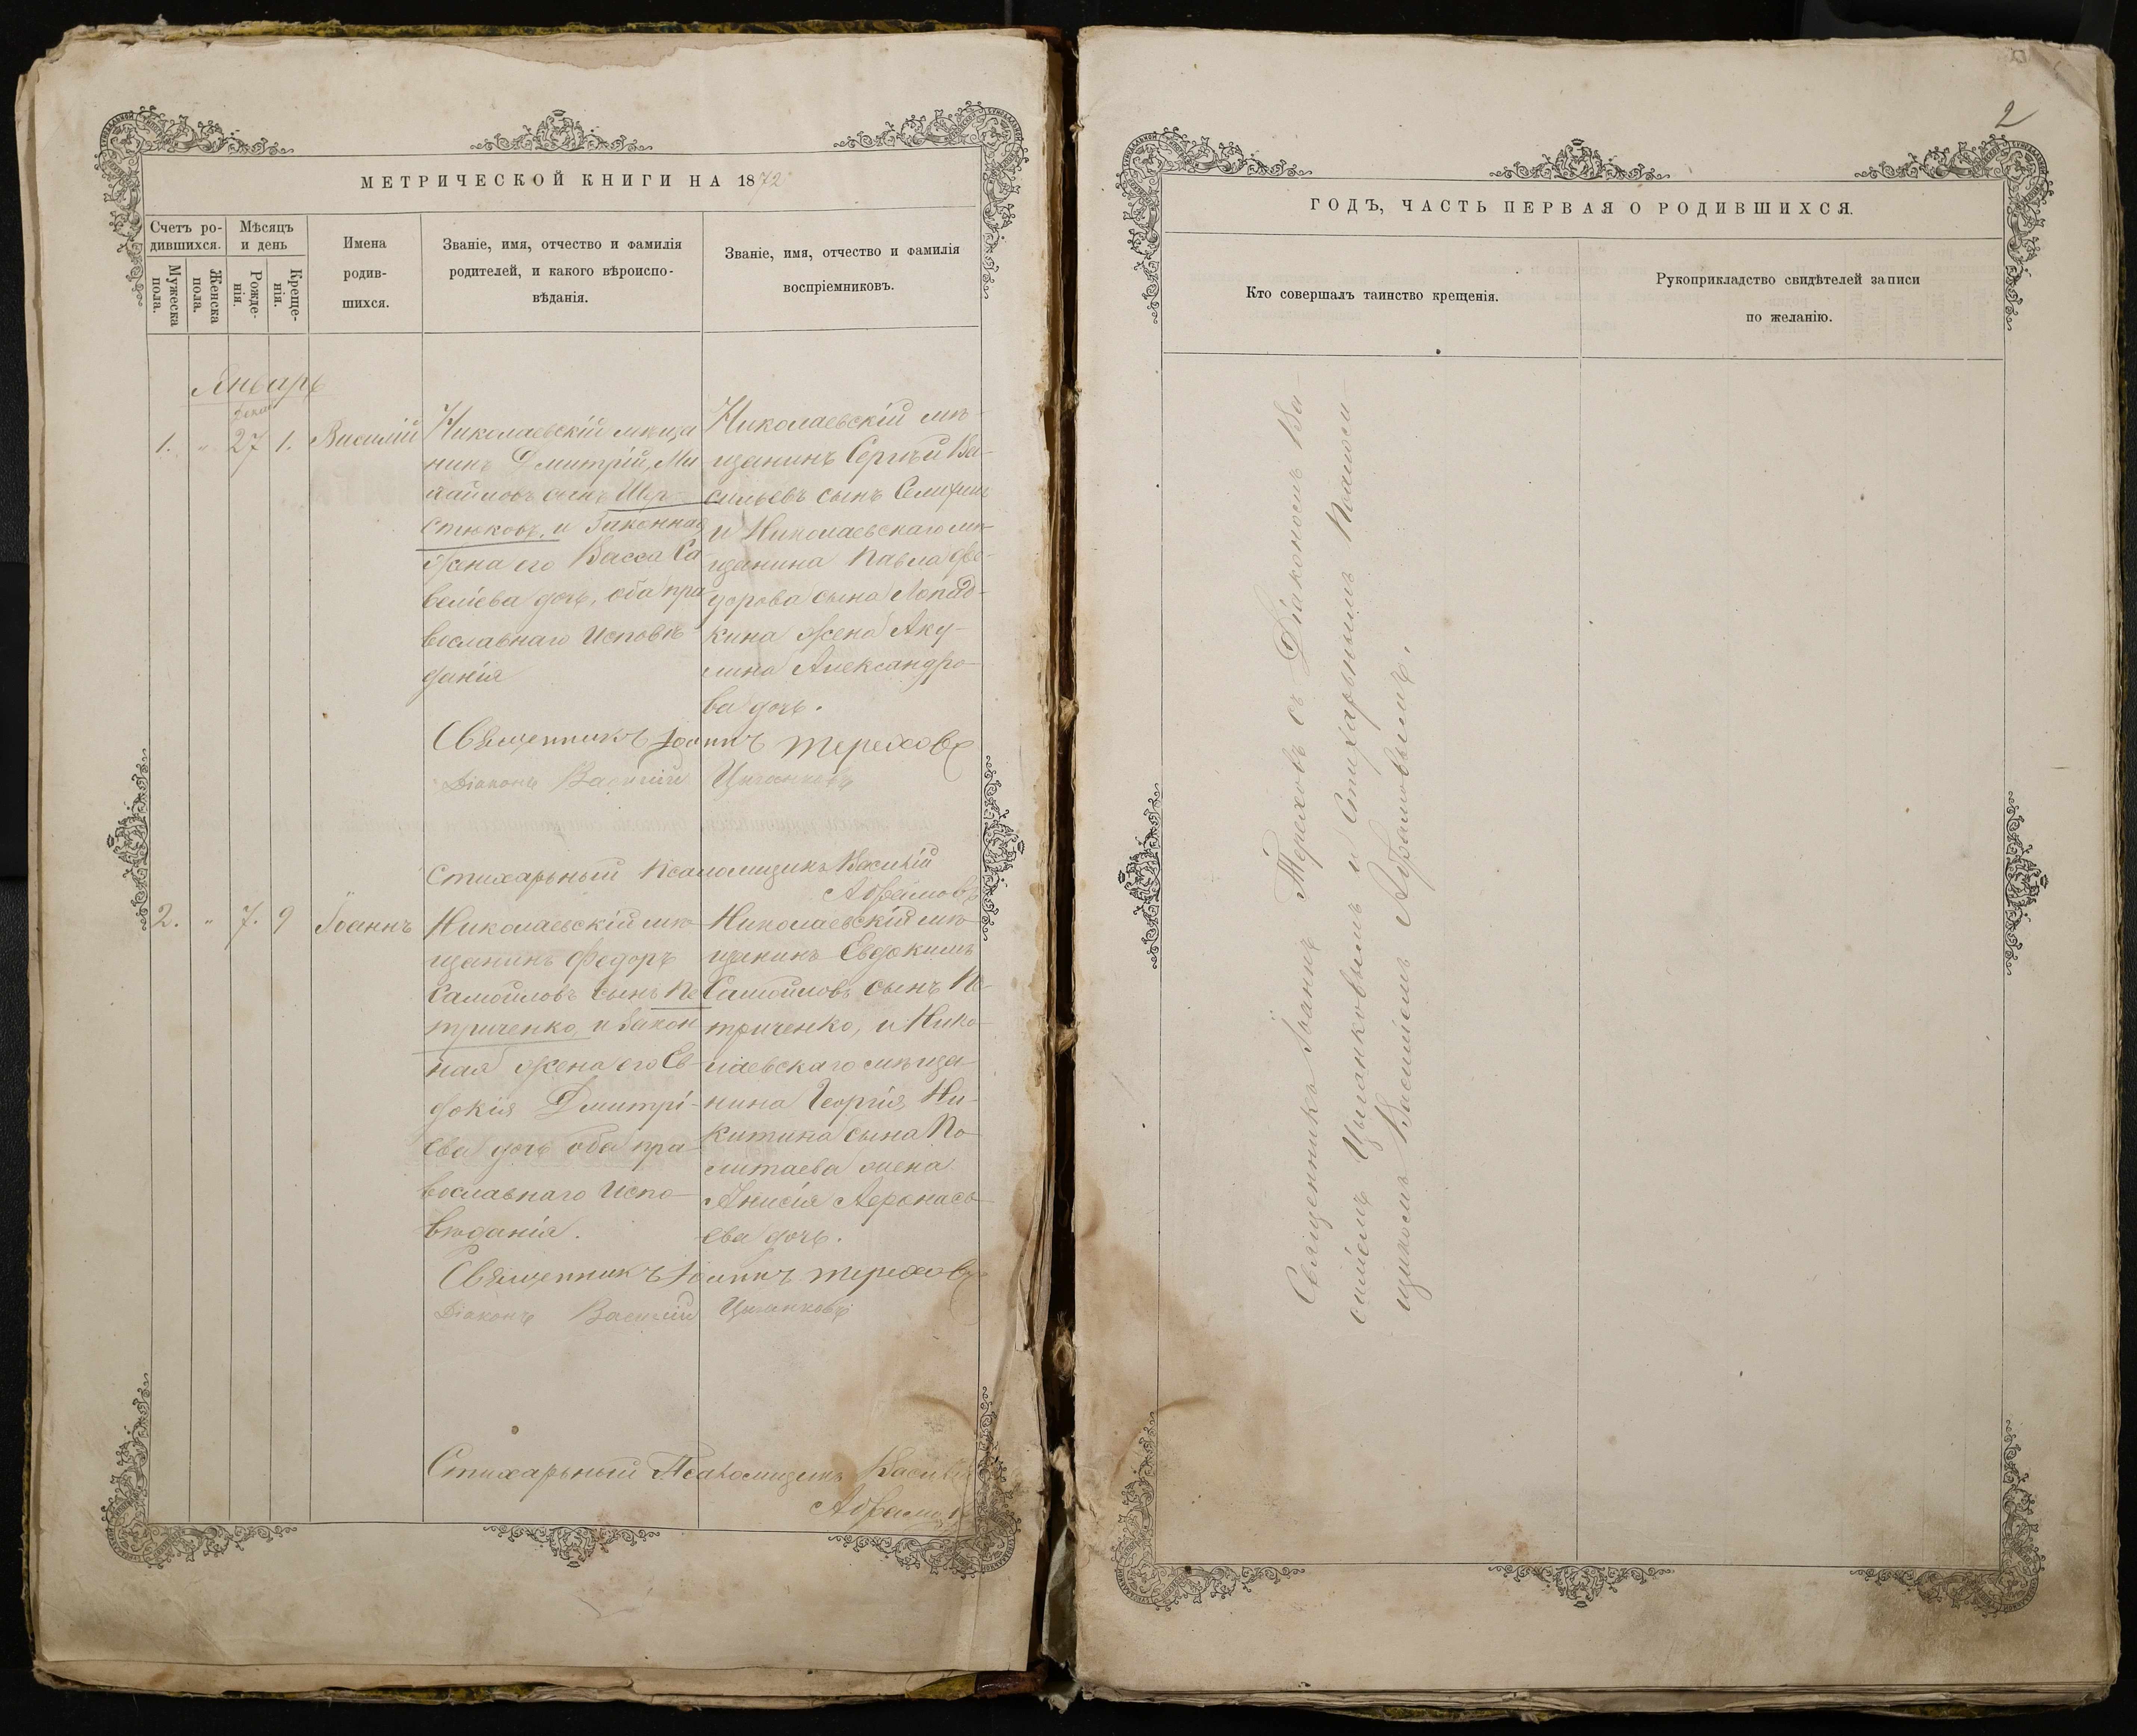 МЕТРИЧЕСКОЙ КНИГИ НА 1872
Счетъ ро-
дившихся.
Мѣсяцъ
и день
Мужеска
пола.
Женска
пола.
Рожде-
нія.
Креще-
нія.
Имена
родив-
шихся.
Званіе, имя, отчество и фамилія
родителей, и какого вѣроиспо-
вѣданія.
Званіе, имя, отчество и фамилія
воспріемниковъ.
Январь
Декаб
1. " 27 1. Василій
Николаевскій мѣща
нинъ Дмитрій, Ми
хайловъ сынъ
стюковъ, и Законная
жена его Васса Са
веліева дочь, оба пра
вославнаго Исповѣ
данія
Николаевскій мѣ-
щанинъ Сергѣй Ва-
сильевъ сынъ
и Николаевскаго мѣ-
щанина Павла Фео-
дорова сына Лопат-
кина жена Аку-
лина Александро-
ва дочь.
Священникъ Іоаннъ Тереховъ
Діаконъ Василій Цыганковъ
Стихарьный Псаломщикъ Василій
Абрамовъ
2. " 7. 9 Іоаннъ
Николаевскій мѣ-
щанинъ Федоръ
Самойловъ сынъ Пе
триченко, и Закон
ная жена его Ев-
докія Дмитрі-
ева дочь оба пра-
вославнаго Испо-
вѣданія.
Николаевскій мѣ-
щанинъ Евдокимъ
Самойловъ сынъ Пе-
триченко, и Нико-
лаевскаго мѣща-
нина Георгія, Ни-
китина сына По-
литаева жена
Анисія Афонась-
ева дочь.
Священникъ Іоаннъ Тереховъ
Діаконъ Василій Цыганковъ
Стихарьный Псаломщикъ Василій
Абрамовъ
2
ГОДЪ, ЧАСТЬ ПЕРВАЯ О РОДИВШИХСЯ.
Кто совершалъ таинство крещенія.
Рукоприкладство свидѣтелей записи
по желанію.
Священникъ Іоаннъ Тереховъ съ Діакономъ Ва-
силіемъ Цыганковымъ и Стихарьнымъ Псалом-
щикомъ Василіемъ Абрамовымъ.